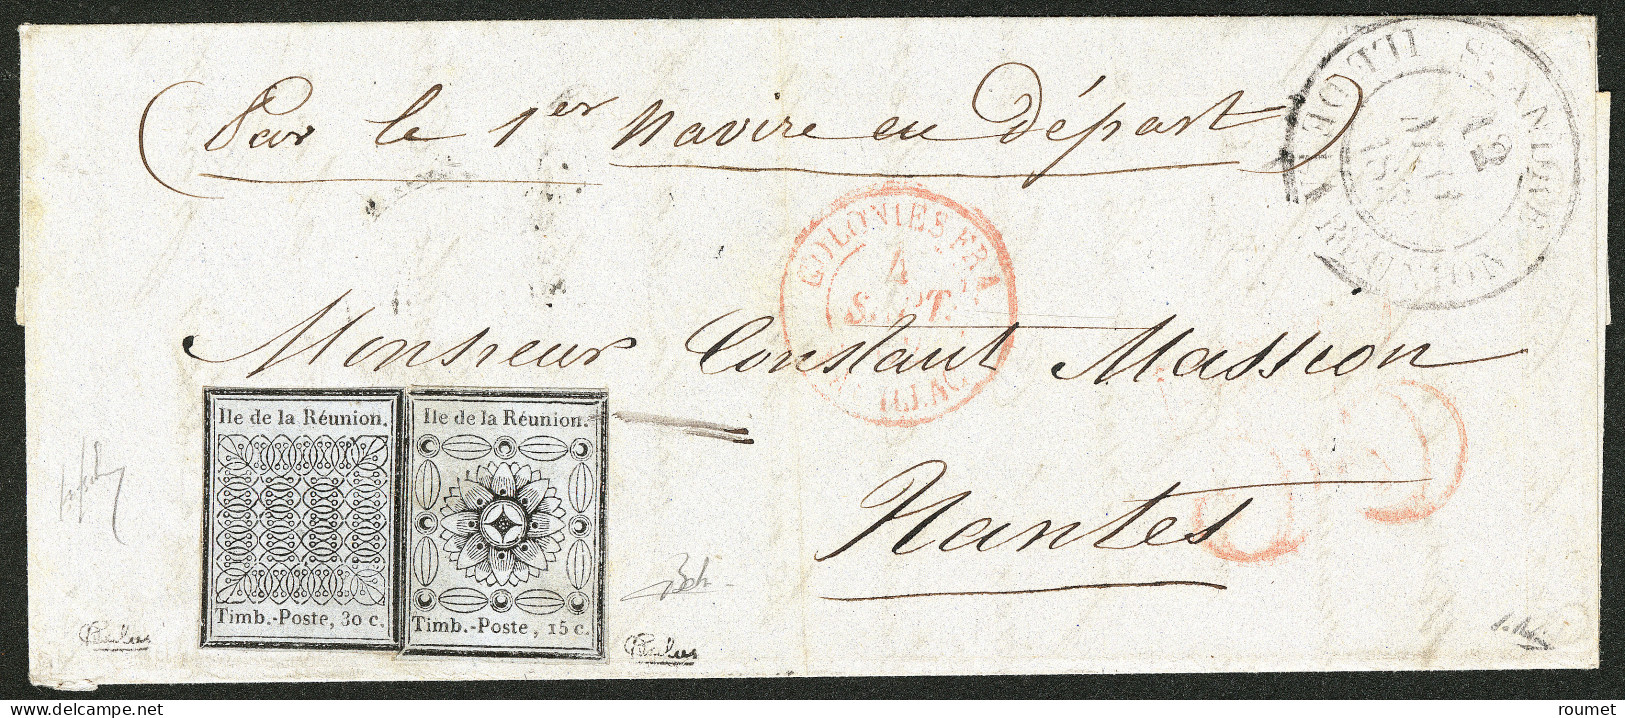 (Par le 1er Navire en départ)
ILE DE LA RÉUNION
12
COLONIES FRA
4
SEPT.
Monsieur Constant Massion
Nantes
Ile de la Réunion.
Timb.-Poste, 30 c.
Ile de la Réunion.
Timb.-Poste, 15 c.
delcampe.net
roumet